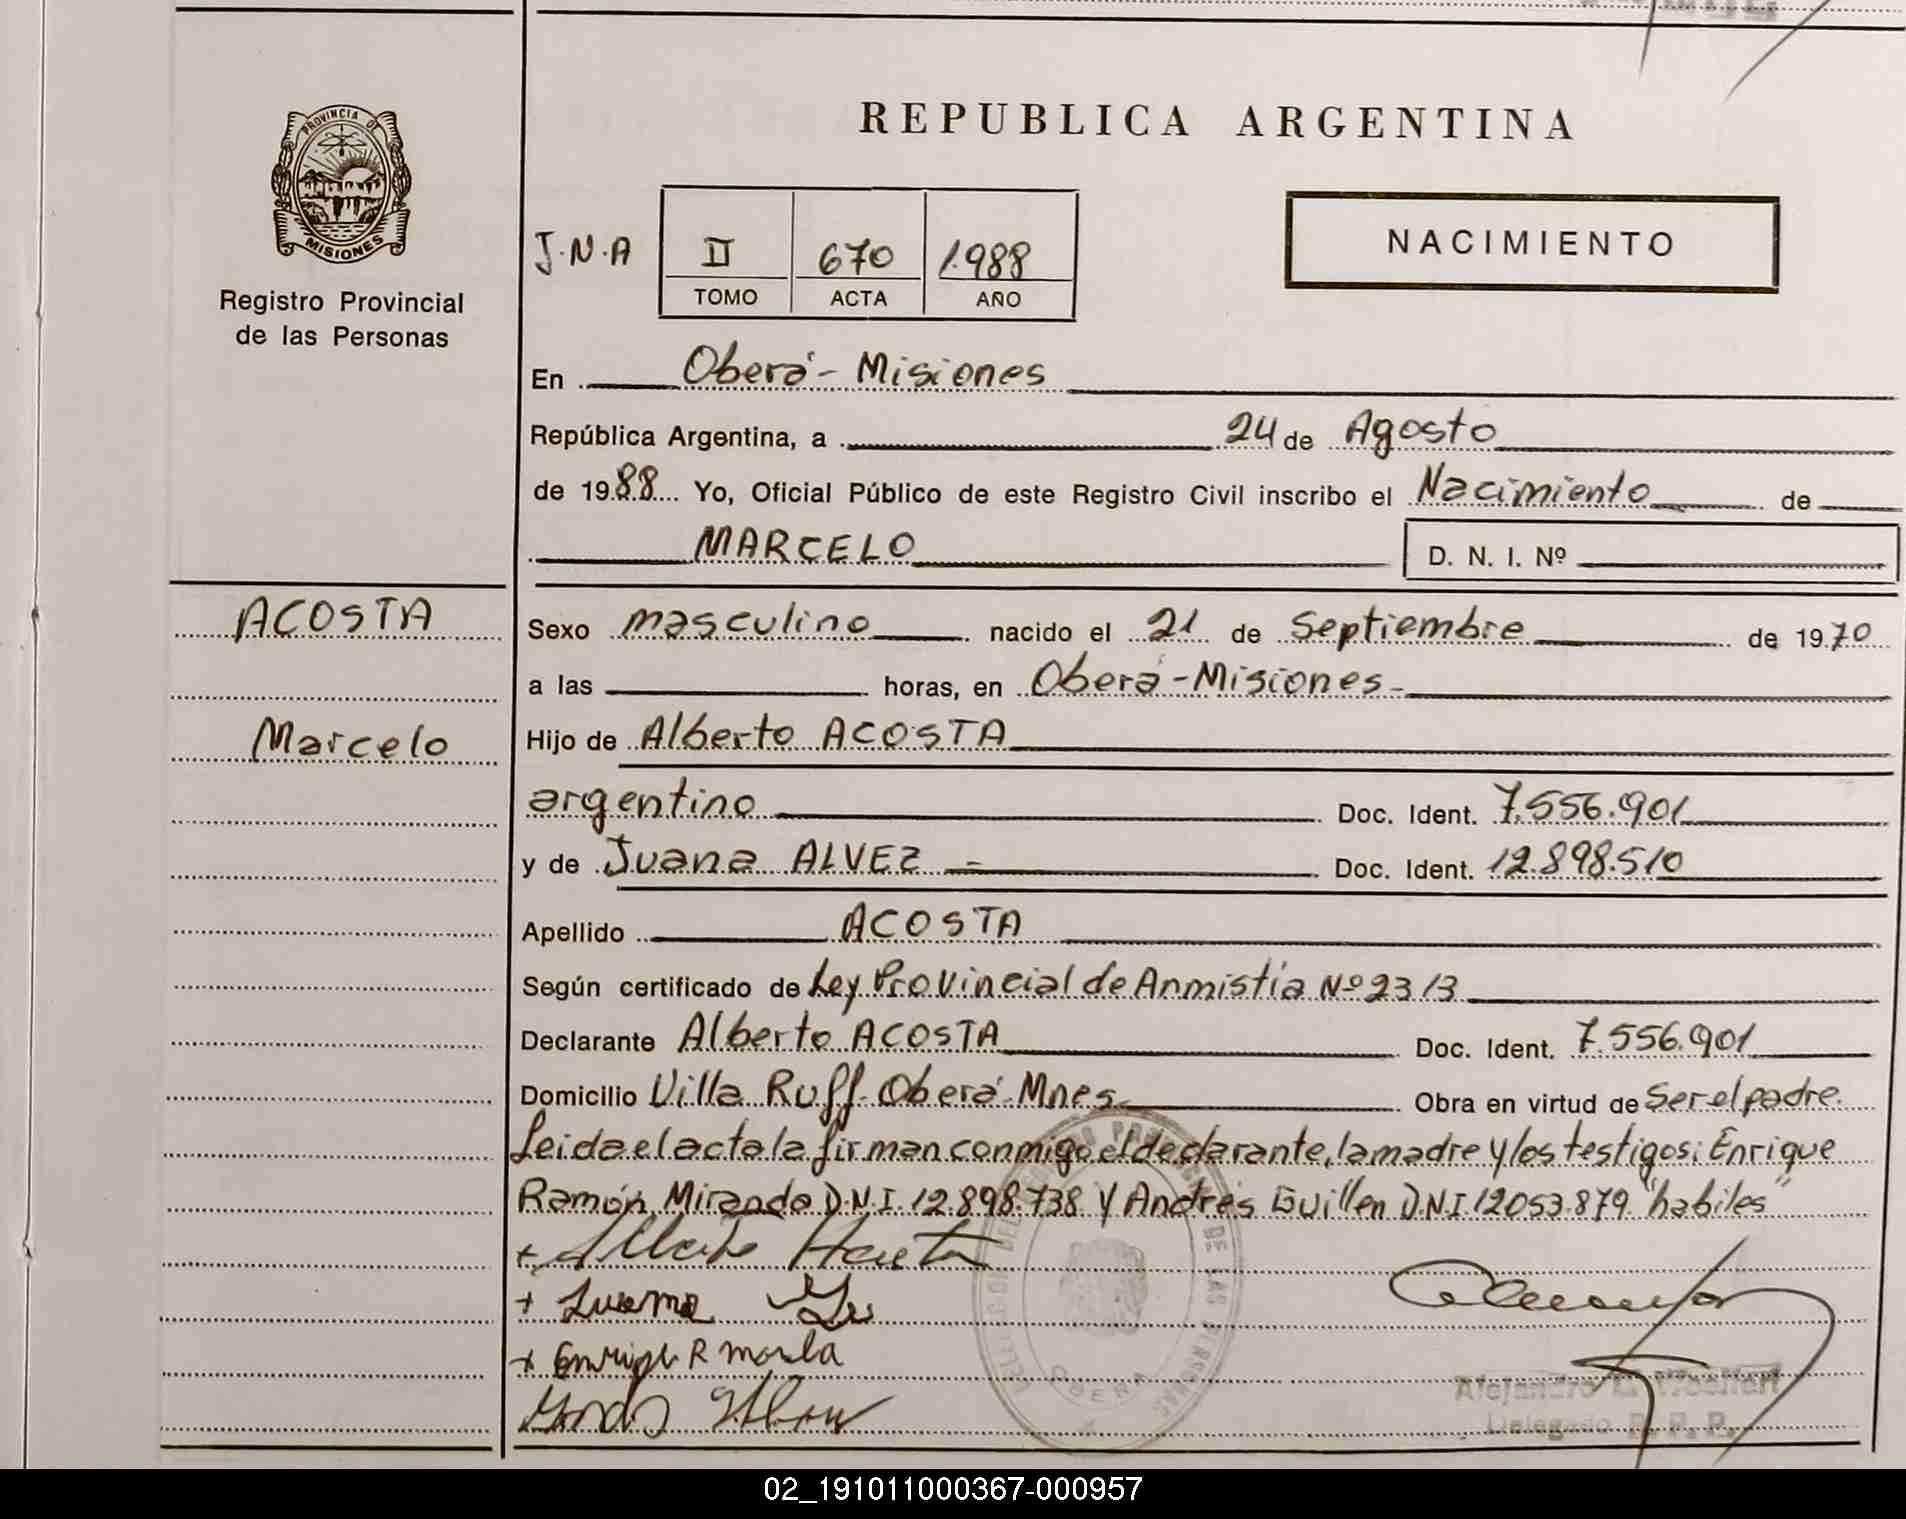 PROVINCIA DE
MISIONES
Registro Provincial
de las Personas
REPUBLICA ARGENTINA
NACIMIENTO
J.N.A II 670 1.988
TOMO ACTA AÑO
En Oberá - Misiones
República Argentina, a 24 de Agosto
de 1988 Yo, Oficial Público de este Registro Civil inscribo el Nacimiento de
MARCELO D. N. I. Nº
ACOSTA
Marcelo
Sexo masculino nacido el 21 de Septiembre de 1970
a las horas, en Oberá - Misiones -
Hijo de Alberto ACOSTA
argentino Doc. Ident. 7.556.901
y de Juana ALVEZ - Doc. Ident. 12.898.510
Apellido ACOSTA
Según certificado de Ley Provincial de Anmistía Nº 2313
Declarante Alberto ACOSTA Doc. Ident. 7.556.901
Domicilio Villa Ruff - Oberá - Mnes Obra en virtud de Ser el padre.
Leida el acta la firman conmigo el declarante, la madre y los testigos: Enrique
Ramón Miranda D.N.I. 12.898.738 y Andrés Guillen D.N.I 12053.879 "habiles"
+ Alberto Acosta
+
+ R
OBERA
Alejandro
Delegado R. P. P.
02_191011000367-000957